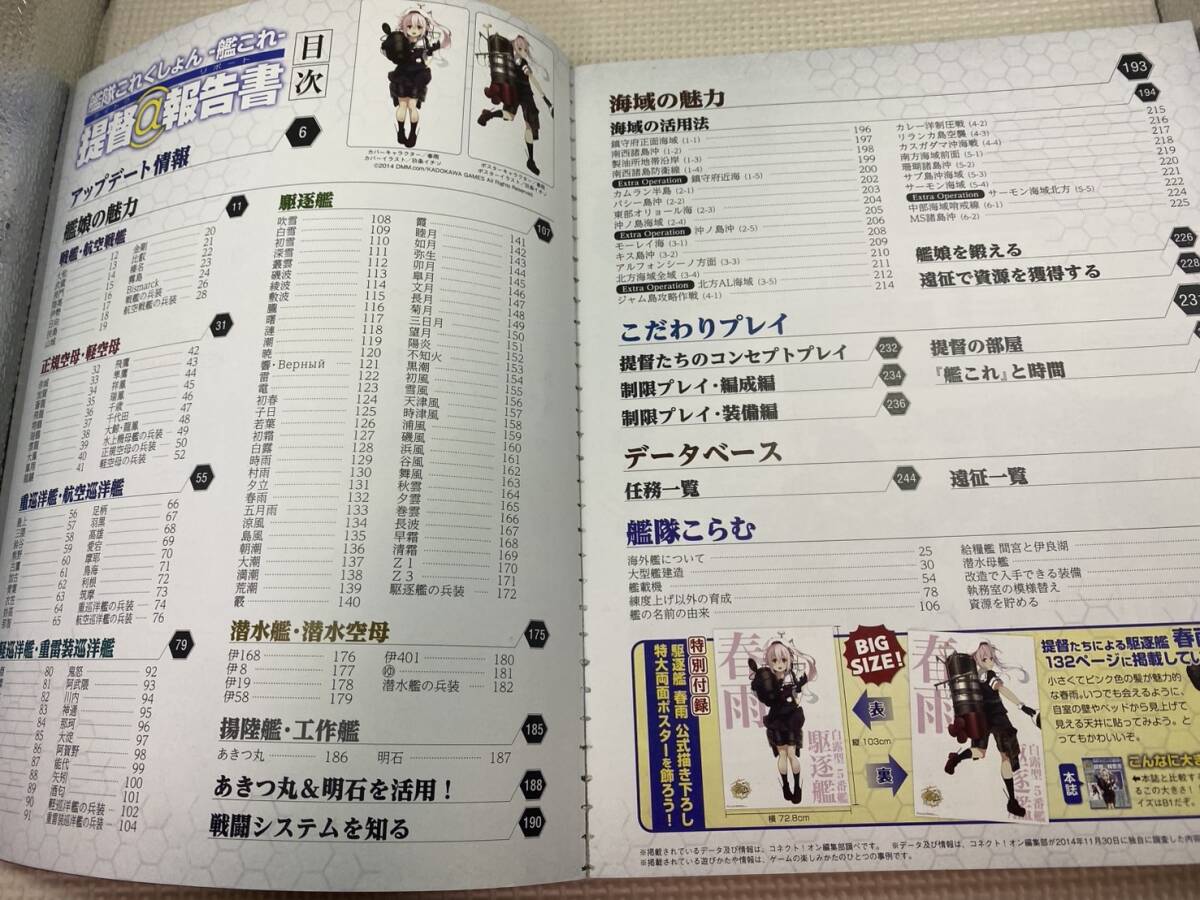 艦隊これくしょん -艦これ-
リポート
提督@報告書
目次
カバーキャラクター／春雨
カバーイラスト／玖条イチソ
ポスターキャラクター／春雨
ポスターイラスト／玖条イチソ
©2014 DMM.com/KADOKAWA GAMES All Rights Reserved.
アップデート情報 6
艦娘の魅力 11
戦艦・航空戦艦
金剛 20
比叡 21
榛名 22
霧島 23
Bismarck 24
戦艦の兵装 26
航空戦艦の兵装 28
正規空母・軽空母 31
飛鷹 42
隼鷹 43
祥鳳 44
瑞鳳 45
千歳 46
千代田 47
大鯨・龍鳳 48
水上機母艦の兵装 49
正規空母の兵装 50
軽空母の兵装 52
重巡洋艦・航空巡洋艦 55
足柄 66
羽黒 67
高雄 68
愛宕 69
摩耶 70
鳥海 71
利根 72
筑摩 73
重巡洋艦の兵装 74
航空巡洋艦の兵装 76
軽巡洋艦・重雷装巡洋艦 79
鬼怒 92
阿武隈 93
川内 94
神通 95
那珂 96
大淀 97
阿賀野 98
能代 99
矢矧 100
酒匂 101
軽巡洋艦の兵装 102
重雷装巡洋艦の兵装 104
駆逐艦 107
吹雪 108
白雪 109
初雪 110
深雪 111
叢雲 112
磯波 113
綾波 114
敷波 115
朧 116
曙 117
漣 118
潮 119
暁 120
響・Верный 121
雷 122
電 123
初春 124
子日 125
若葉 126
初霜 127
白露 128
時雨 129
村雨 130
夕立 131
春雨 132
五月雨 133
涼風 134
島風 135
朝潮 136
大潮 137
満潮 138
荒潮 139
霰 140
霞 141
睦月 142
如月 143
弥生 144
卯月 145
皐月 146
文月 147
長月 148
菊月 149
三日月 150
望月 151
陽炎 152
不知火 153
黒潮 154
初風 155
雪風 156
天津風 157
時津風 158
浦風 159
磯風 160
浜風 161
谷風 162
舞風 163
秋雲 164
夕雲 165
巻雲 166
長波 167
早霜 168
清霜 169
Z1 170
Z3 171
駆逐艦の兵装 172
潜水艦・潜水空母 175
伊168 176
伊8 177
伊19 178
伊58 179
伊401 180
ゆ 181
潜水艦の兵装 182
揚陸艦・工作艦 185
あきつ丸 186
明石 187
あきつ丸＆明石を活用！ 188
戦闘システムを知る 190
海域の魅力 193
海域の活用法 194
鎮守府正面海域 (1-1) 196
南西諸島沖 (1-2) 197
製油所地帯沿岸 (1-3) 198
南西諸島防衛線 (1-4) 199
Extra Operation 鎮守府近海 (1-5) 200
カムラン半島 (2-1) 202
バシー島沖 (2-2) 203
東部オリョール海 (2-3) 204
沖ノ島海域 (2-4) 205
Extra Operation 沖ノ島沖 (2-5) 206
モーレイ海 (3-1) 208
キス島沖 (3-2) 209
アルフォンシーノ方面 (3-3) 210
北方海域全域 (3-4) 211
Extra Operation 北方AL海域 (3-5) 212
ジャム島攻略作戦 (4-1) 214
カレー洋制圧戦 (4-2) 215
リランカ島空襲 (4-3) 216
カスガダマ沖海戦 (4-4) 217
南方海域前面 (5-1) 218
珊瑚諸島沖 (5-2) 219
サブ島沖海域 (5-3) 220
サーモン海域 (5-4) 221
Extra Operation サーモン海域北方 (5-5) 222
中部海域哨戒線 (6-1) 224
MS諸島沖 (6-2) 225
艦娘を鍛える 226
遠征で資源を獲得する 228
こだわりプレイ
提督たちのコンセプトプレイ 232
制限プレイ・編成編 234
制限プレイ・装備編 236
提督の部屋
『艦これ』と時間
データベース
任務一覧 244
遠征一覧
艦隊こらむ
海外艦について 25
大型艦建造 30
艦載機 54
練度上げ以外の育成 78
艦の名前の由来 106
給糧艦 間宮と伊良湖
潜水母艦
改造で入手できる装備
執務室の模様替え
資源を貯める
特別付録
駆逐艦 春雨 公式描き下ろし
特大両面ポスターを飾ろう！
春雨
駆逐艦
白露型・5番艦
BIG SIZE!
表
縦 103cm
裏
横 72.8cm
春雨
白露型・5番艦
駆逐艦
提督たちによる駆逐艦 春雨
132ページに掲載してい
小さくてピンク色の髪が魅力的
な春雨。いつでも会えるように、
自室の壁やベッドから見上げて
見える天井に貼ってみよう。と
ってもかわいいぞ。
こんなに大き
本誌
←本誌と比較す
るこの大きさ！
イズはB1だぞ。
※掲載されているデータ及び情報は、コネクト！オン編集部調べです。 ※データ及び情報は、コネクト！オン編集部が2014年11月30日に独自に調査した内容
※掲載されている遊びかたや情報は、ゲームの楽しみかたのひとつの事例です。